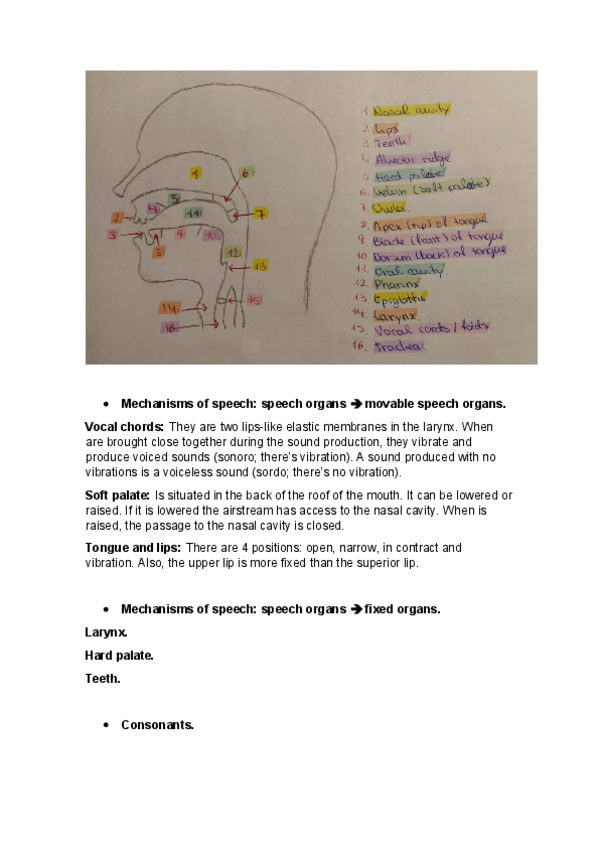 1. Nasal cavity
2. Lips
3. Teeth
4. Alveolar ridge
5. Hard palate
6. Velum (soft palate)
7. Uvula.
8. Apex (tip) of tongue
9. Blade (front) of tongue
10. Dorsum (back) of tongue
11. Oral cavity.
12. Pharinx
13. Epiglottis
14. Larynx.
15. Vocal cords / folds.
16. Trachea.
1
6
5
4
11
7
2
3
9
10
8
12
13
14
15
16
• Mechanisms of speech: speech organs ➔ movable speech organs.
Vocal chords: They are two lips-like elastic membranes in the larynx. When
are brought close together during the sound production, they vibrate and
produce voiced sounds (sonoro; there’s vibration). A sound produced with no
vibrations is a voiceless sound (sordo; there’s no vibration).
Soft palate: Is situated in the back of the roof of the mouth. It can be lowered or
raised. If it is lowered the airstream has access to the nasal cavity. When is
raised, the passage to the nasal cavity is closed.
Tongue and lips: There are 4 positions: open, narrow, in contract and
vibration. Also, the upper lip is more fixed than the superior lip.
• Mechanisms of speech: speech organs ➔ fixed organs.
Larynx.
Hard palate.
Teeth.
• Consonants.